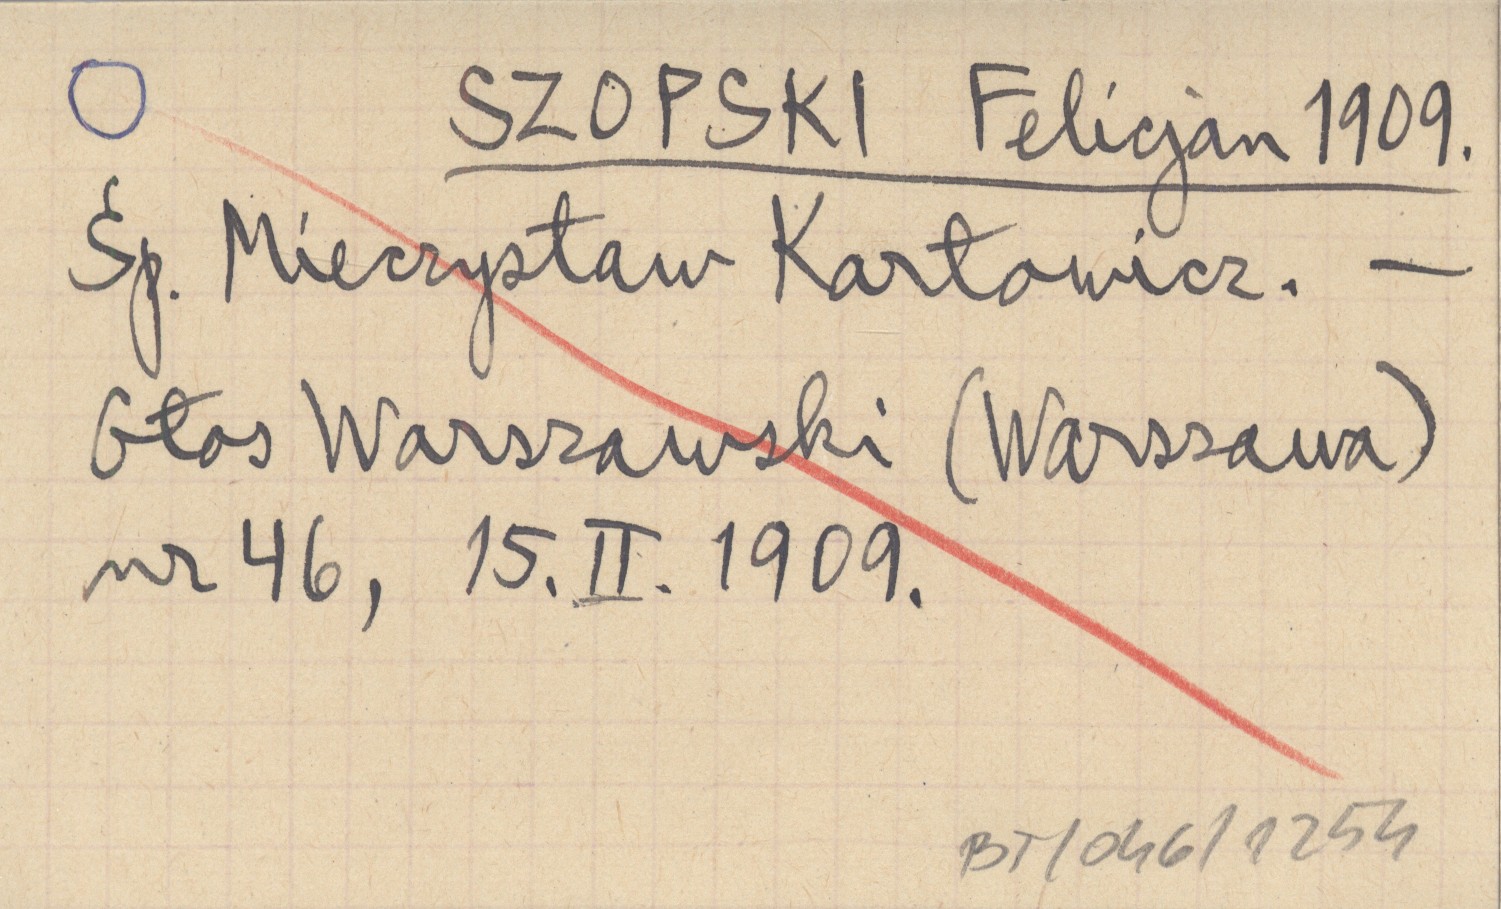 SZOPSKI Felicjan 1909.
Śp. Mieczysław Karłowicz. —
Głos Warszawski (Warszawa)
nr 46, 15.II.1909.
BT/046/1254